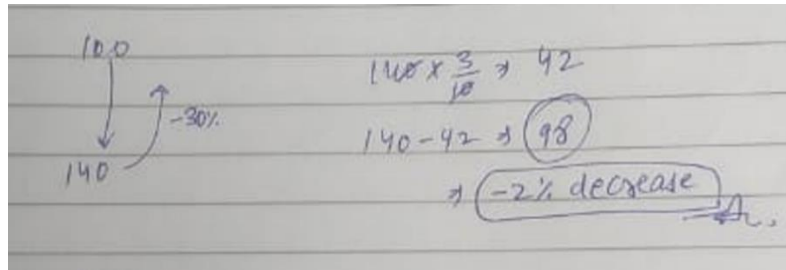 100
-30%
140
140 × 3/10 ⇒ 42
140 - 42 ⇒ 98
⇒ -2% decrease